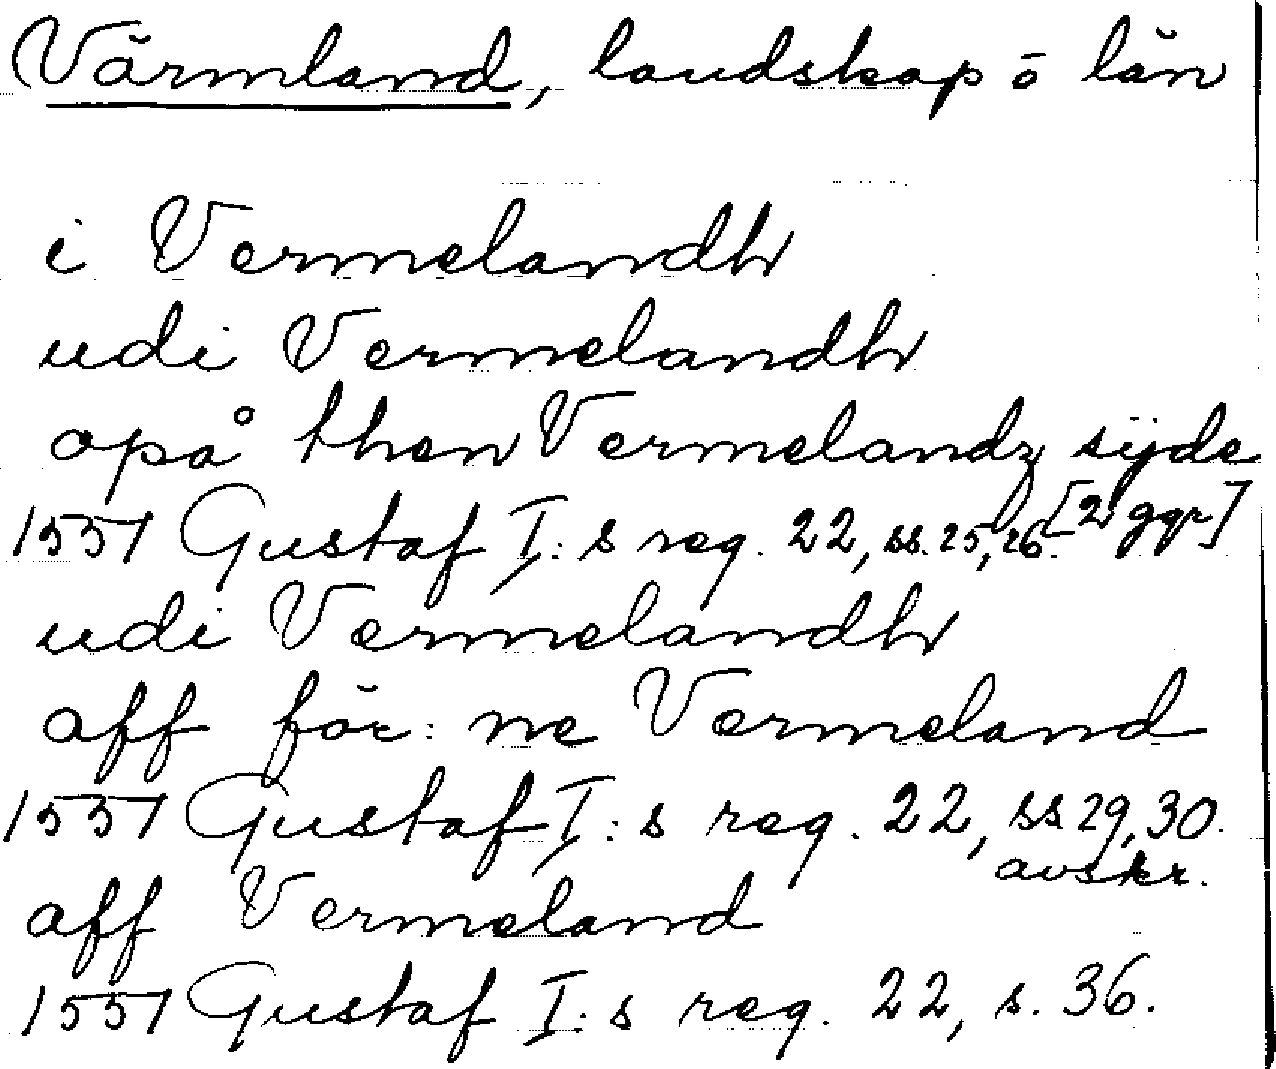 Värmland, landskap o län
i Vermelandh
udi Vermelandh
opå then Vermelandz sijde
1551 Gustaf I:s reg. 22, ss. 25, 26. [2 ggr]
udi Vermelandh
aff för:ne Vermeland
1551 Gustaf I:s reg. 22, ss 29, 30.
avskr.
aff Vermeland
1551 Gustaf I:s reg. 22, s. 36.